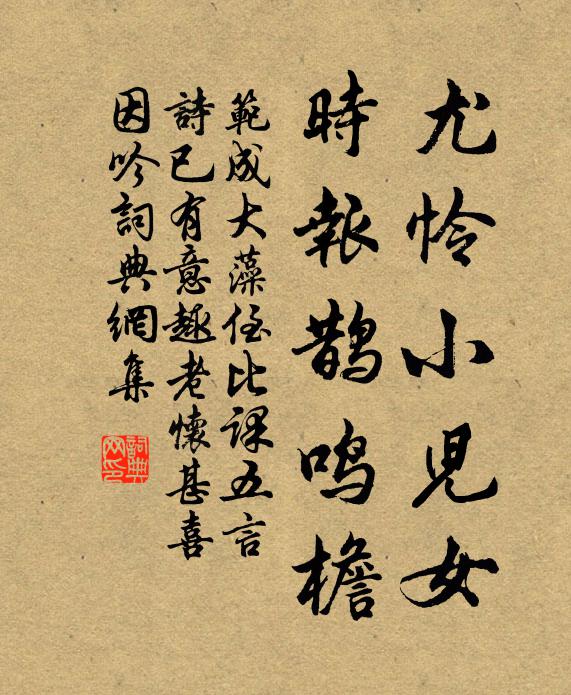 尤怜小児女
時報鵲鳴檐
範成大藻侄比課五言
詩已有意趣老懷甚喜
因吟詞典網集
詞典网印